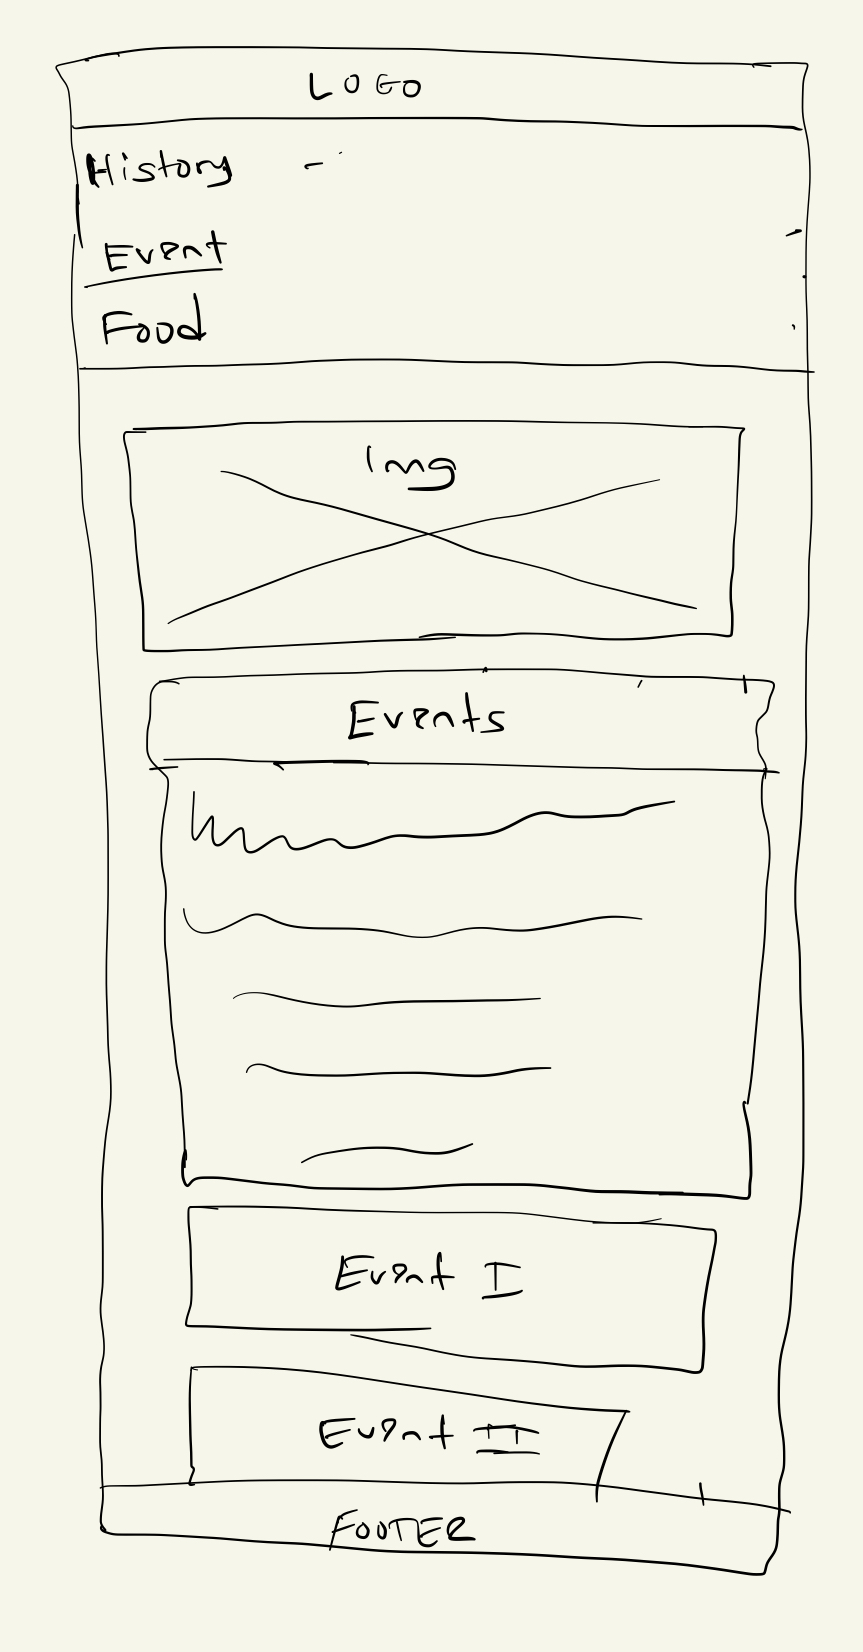 LOGO
History
Event
Food
Img
Events
Event I
Event II
FOOTER